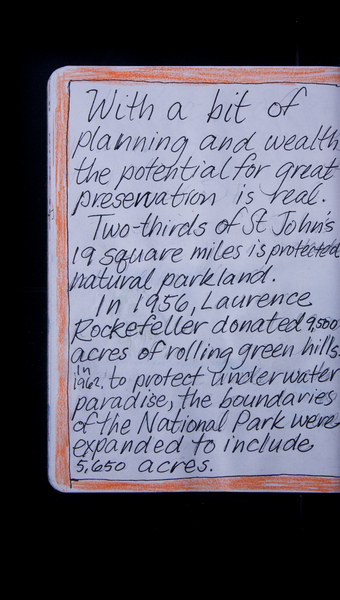 With a bit of
planning and wealth
the potential for great
preservation is real.
Two-thirds of St John's
19 square miles is protected
natural parkland.
In 1956, Laurence
Rockefeller donated 9,500
acres of rolling green hills.
In
1962, to protect underwater
paradise, the boundaries
of the National Park were
expanded to include
5,650 acres.